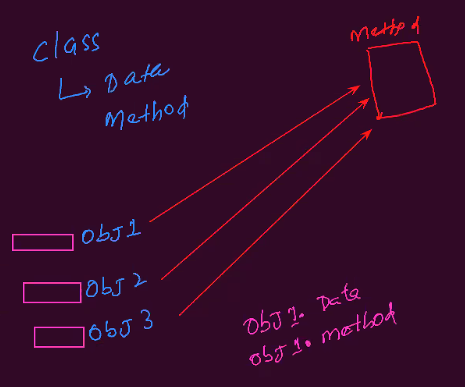 Class
Data
Method
Method
Obj 1
Obj 2
Obj 3
Obj 1. Data
Obj 1. method